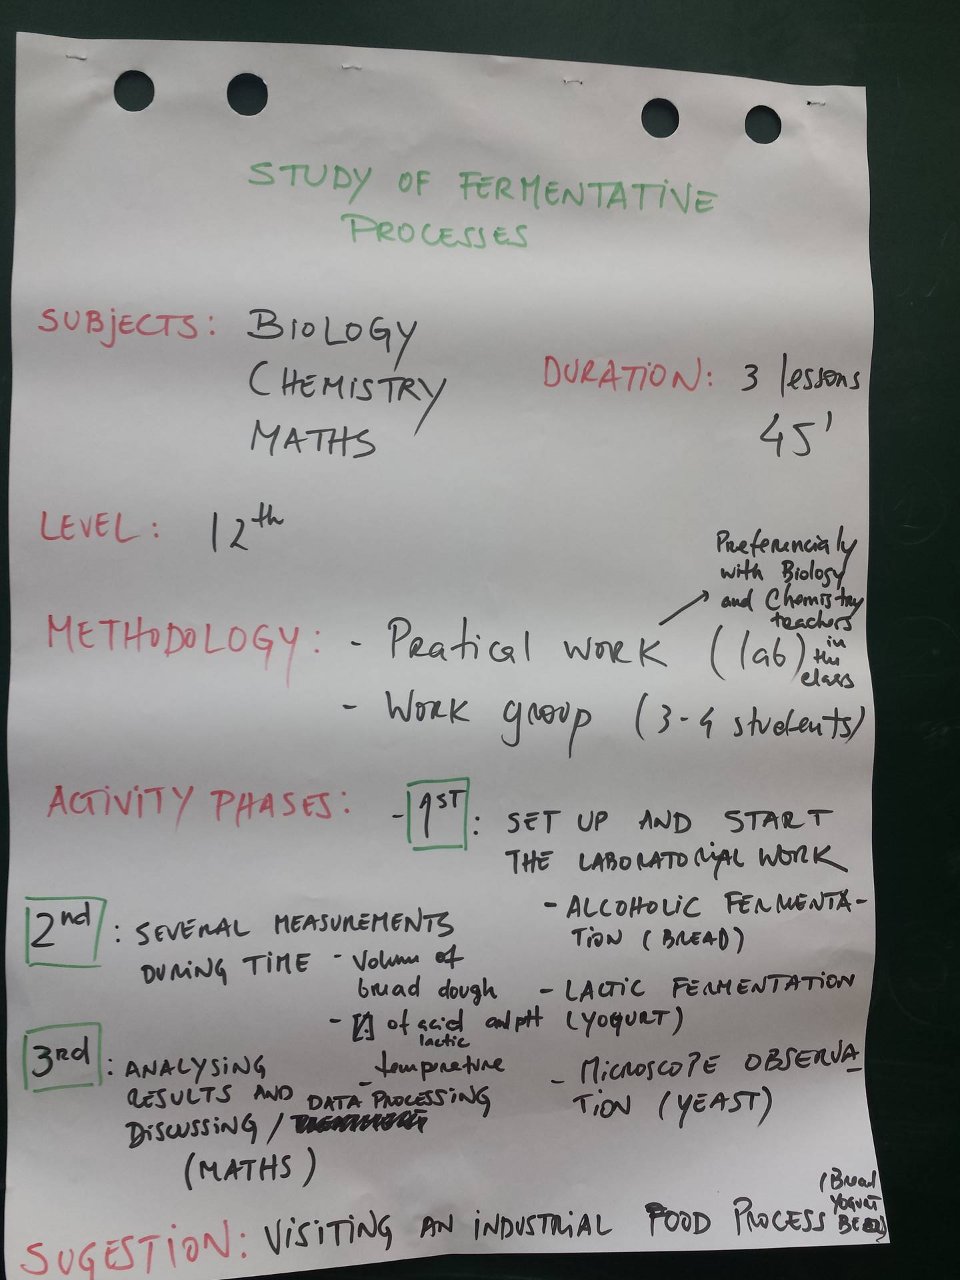 STUDY OF FERMENTATIVE
PROCESSES
SUBJECTS: BIOLOGY
CHEMISTRY
MATHS
DURATION: 3 lessons
45'
LEVEL: 12th
Preferencialy
with Biology
and Chemistry
teachers
in
the
class
METHODOLOGY: - Pratical work (lab)
- Work group (3-4 students)
ACTIVITY PHASES: - 1ST: SET UP AND START
THE LABORATORIAL WORK
- ALCOHOLIC FERMENTA-
TION (BREAD)
- LACTIC FERMENTATION
(YOGURT)
- MICROSCOPE OBSERVA-
TION (YEAST)
2nd: SEVERAL MEASUREMENTS
DURING TIME - Volum of
bread dough
- [ ] of acid and pH
lactic
- temperature
3rd: ANALYSING
RESULTS AND DATA PROCESSING
DISCUSSING /
(MATHS)
SUGESTION: VISITING AN INDUSTRIAL FOOD PROCESS
(Bread
YOGURT